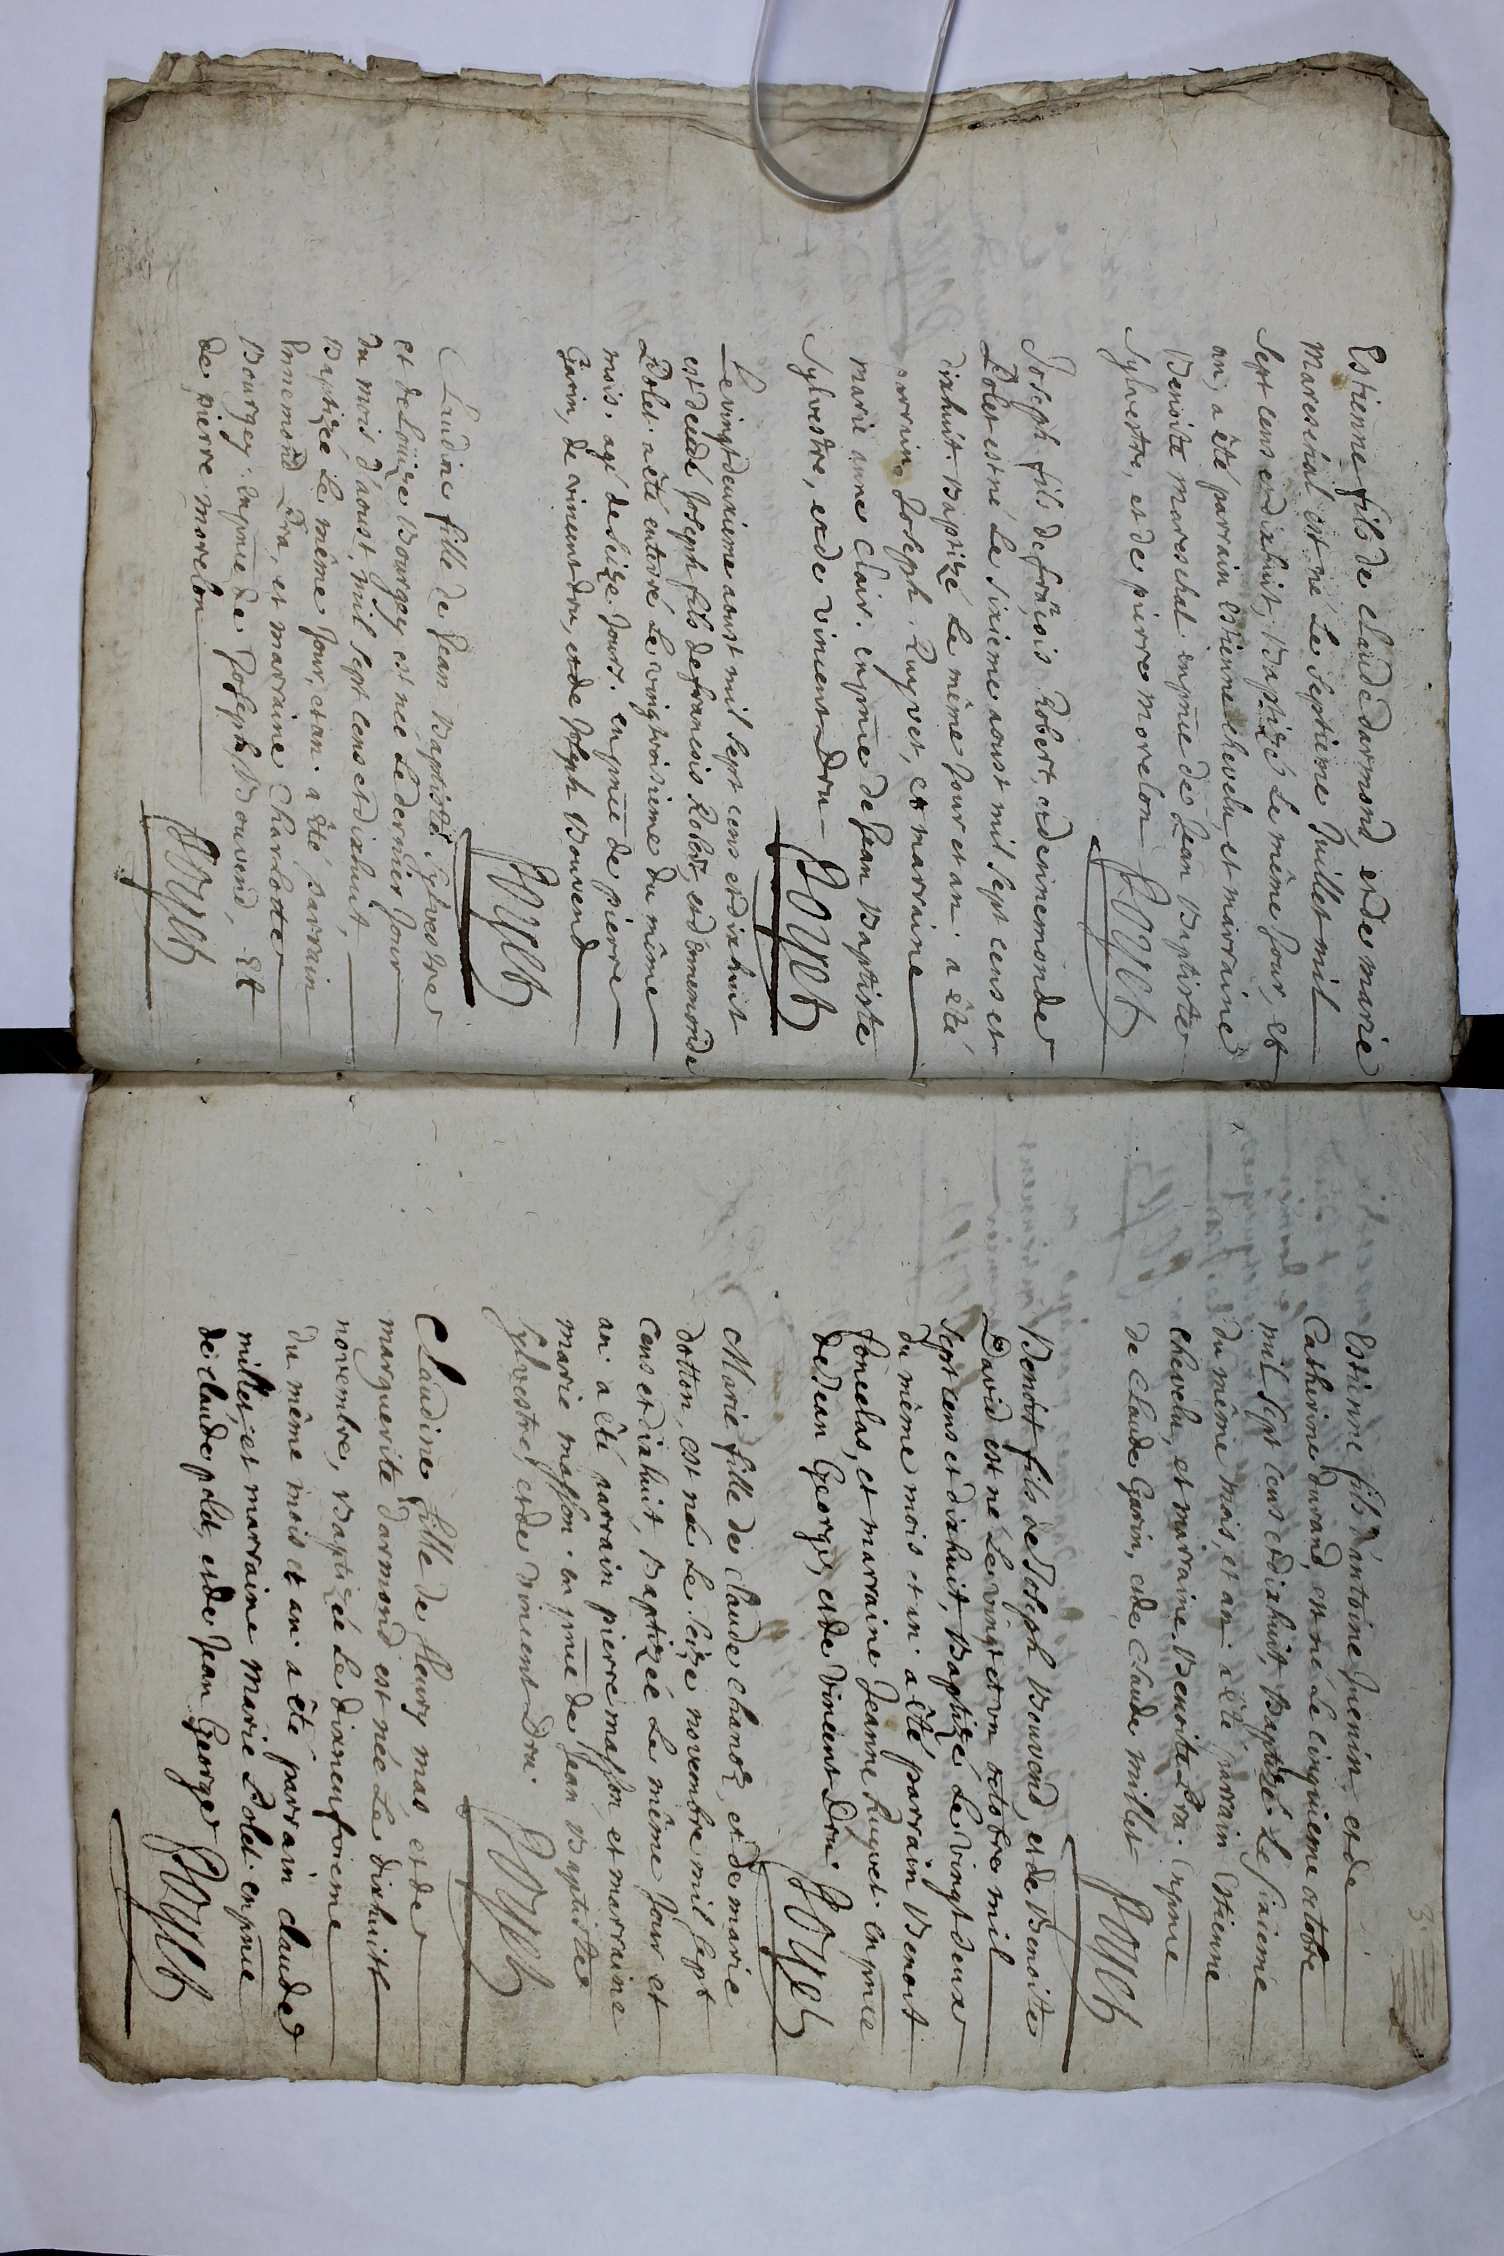 Estienne fils de claude darmond, et de marie
mareschal est né Le Septieme Juillet mil
Sept cens et dixhuit, Baptizé Le même Jour, et
an, a êté parrain Estienne chevelu, et marraine
Benoite mareschal en pn̄ce de Jean Baptiste
Sylvestre, et de pierre morelon
Joseph fils de frācois Robert, et d'ennemonde
Dolet est né Le Sixieme aoust mil Sept cens et
dixhuit. Baptizé Le même Jour et an. a êté
parrain Joseph Ruyvet, et marraine
marie anne clair. en pn̄ce de Jean Baptiste
Sylvestre, et de vincent Dru
Le vingt deuxieme aoust mil Sept cens et dixhuit
est decedé Joseph fils de francois Robert et d'ennemonde
Dolet. a êté enterré Le vingt troisieme du même
mois. agé de Seize Jours. en pn̄ce de pierre
Garin, de vincent dru, et de Joseph Bouvend
Claudine fille de Jean Baptiste Sylvestre
et de Louïze Bourgey est née Le dernier Jour
du mois d'aoust, mil Sept cens et dixhuit,
Baptizée Le même Jour, et an. a êté parrain
Ennemond Dra, et marraine Charlotte
Bourgey. en pn̄ce de Joseph Bouvend, et
de pierre morelon
3.
Estienne fils d'antoine Juenin et de
Catherine durand, est né Le cinquieme octobre
mil Sept cens et dixhuit, Baptizé Le Sixieme
du même mois, et an. a êté parrain Estienne
chevelu, et marraine Benoite Dra. En pn̄ce
de claude Garin, et de claude millet
Benoit fils de Joseph Bouvend, et de Benoite
David est né Le vingt et un octobre mil
Sept cens et dixhuit, Baptizé Le vingt deux
du même mois et an. a êté parrain Benoit
poncelas, et marraine Jeanne Ruyvet. En pn̄ce
de Jean George, et de vincent Dru.
Marie fille de claude chanoz, et de marie
dotton, est née Le Seize novembre mil Sept
cens et dixhuit, Baptizée Le même Jour et
an. a êté parrain pierre masson, et marraine
marie masson. en pn̄ce de Jean Baptiste
Sylvestre, et de vincent Dru.
Claudine fille de fleury mas et de
marguerite darmond est née Le dixhuit
novembre, Baptizée Le dixneufvieme
du même mois et an. a êté parrain claude
millet, et marraine marie Dolet. en pn̄ce
de claude polet, et de Jean George